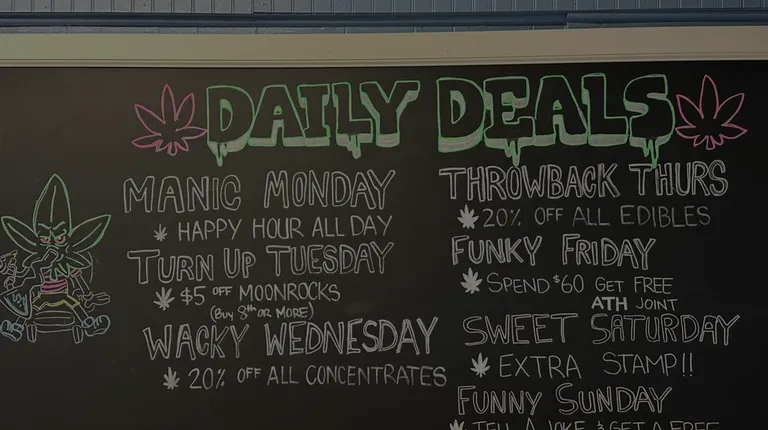 DAILY DEALS
MANIC MONDAY
HAPPY HOUR ALL DAY
TURN UP TUESDAY
$5 OFF MOONROCKS
(BUY 8TH OR MORE)
WACKY WEDNESDAY
20% OFF ALL CONCENTRATES
THROWBACK THURS
20% OFF ALL EDIBLES
FUNKY FRIDAY
SPEND $60 GET FREE
ATH JOINT
SWEET SATURDAY
EXTRA STAMP!!
FUNNY SUNDAY
TELL A JOKE & GET A FREE